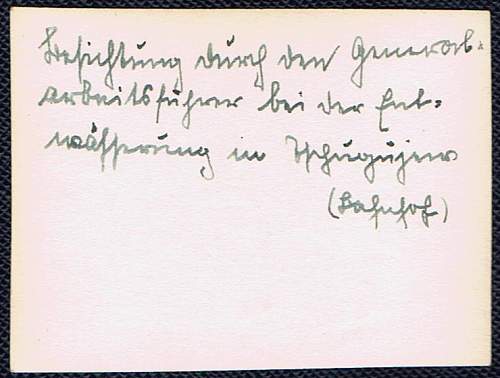 Besichtigung durch den General-
arbeitsführer bei der Ent-
wässerung in Tschugujew
(Bahnhof)